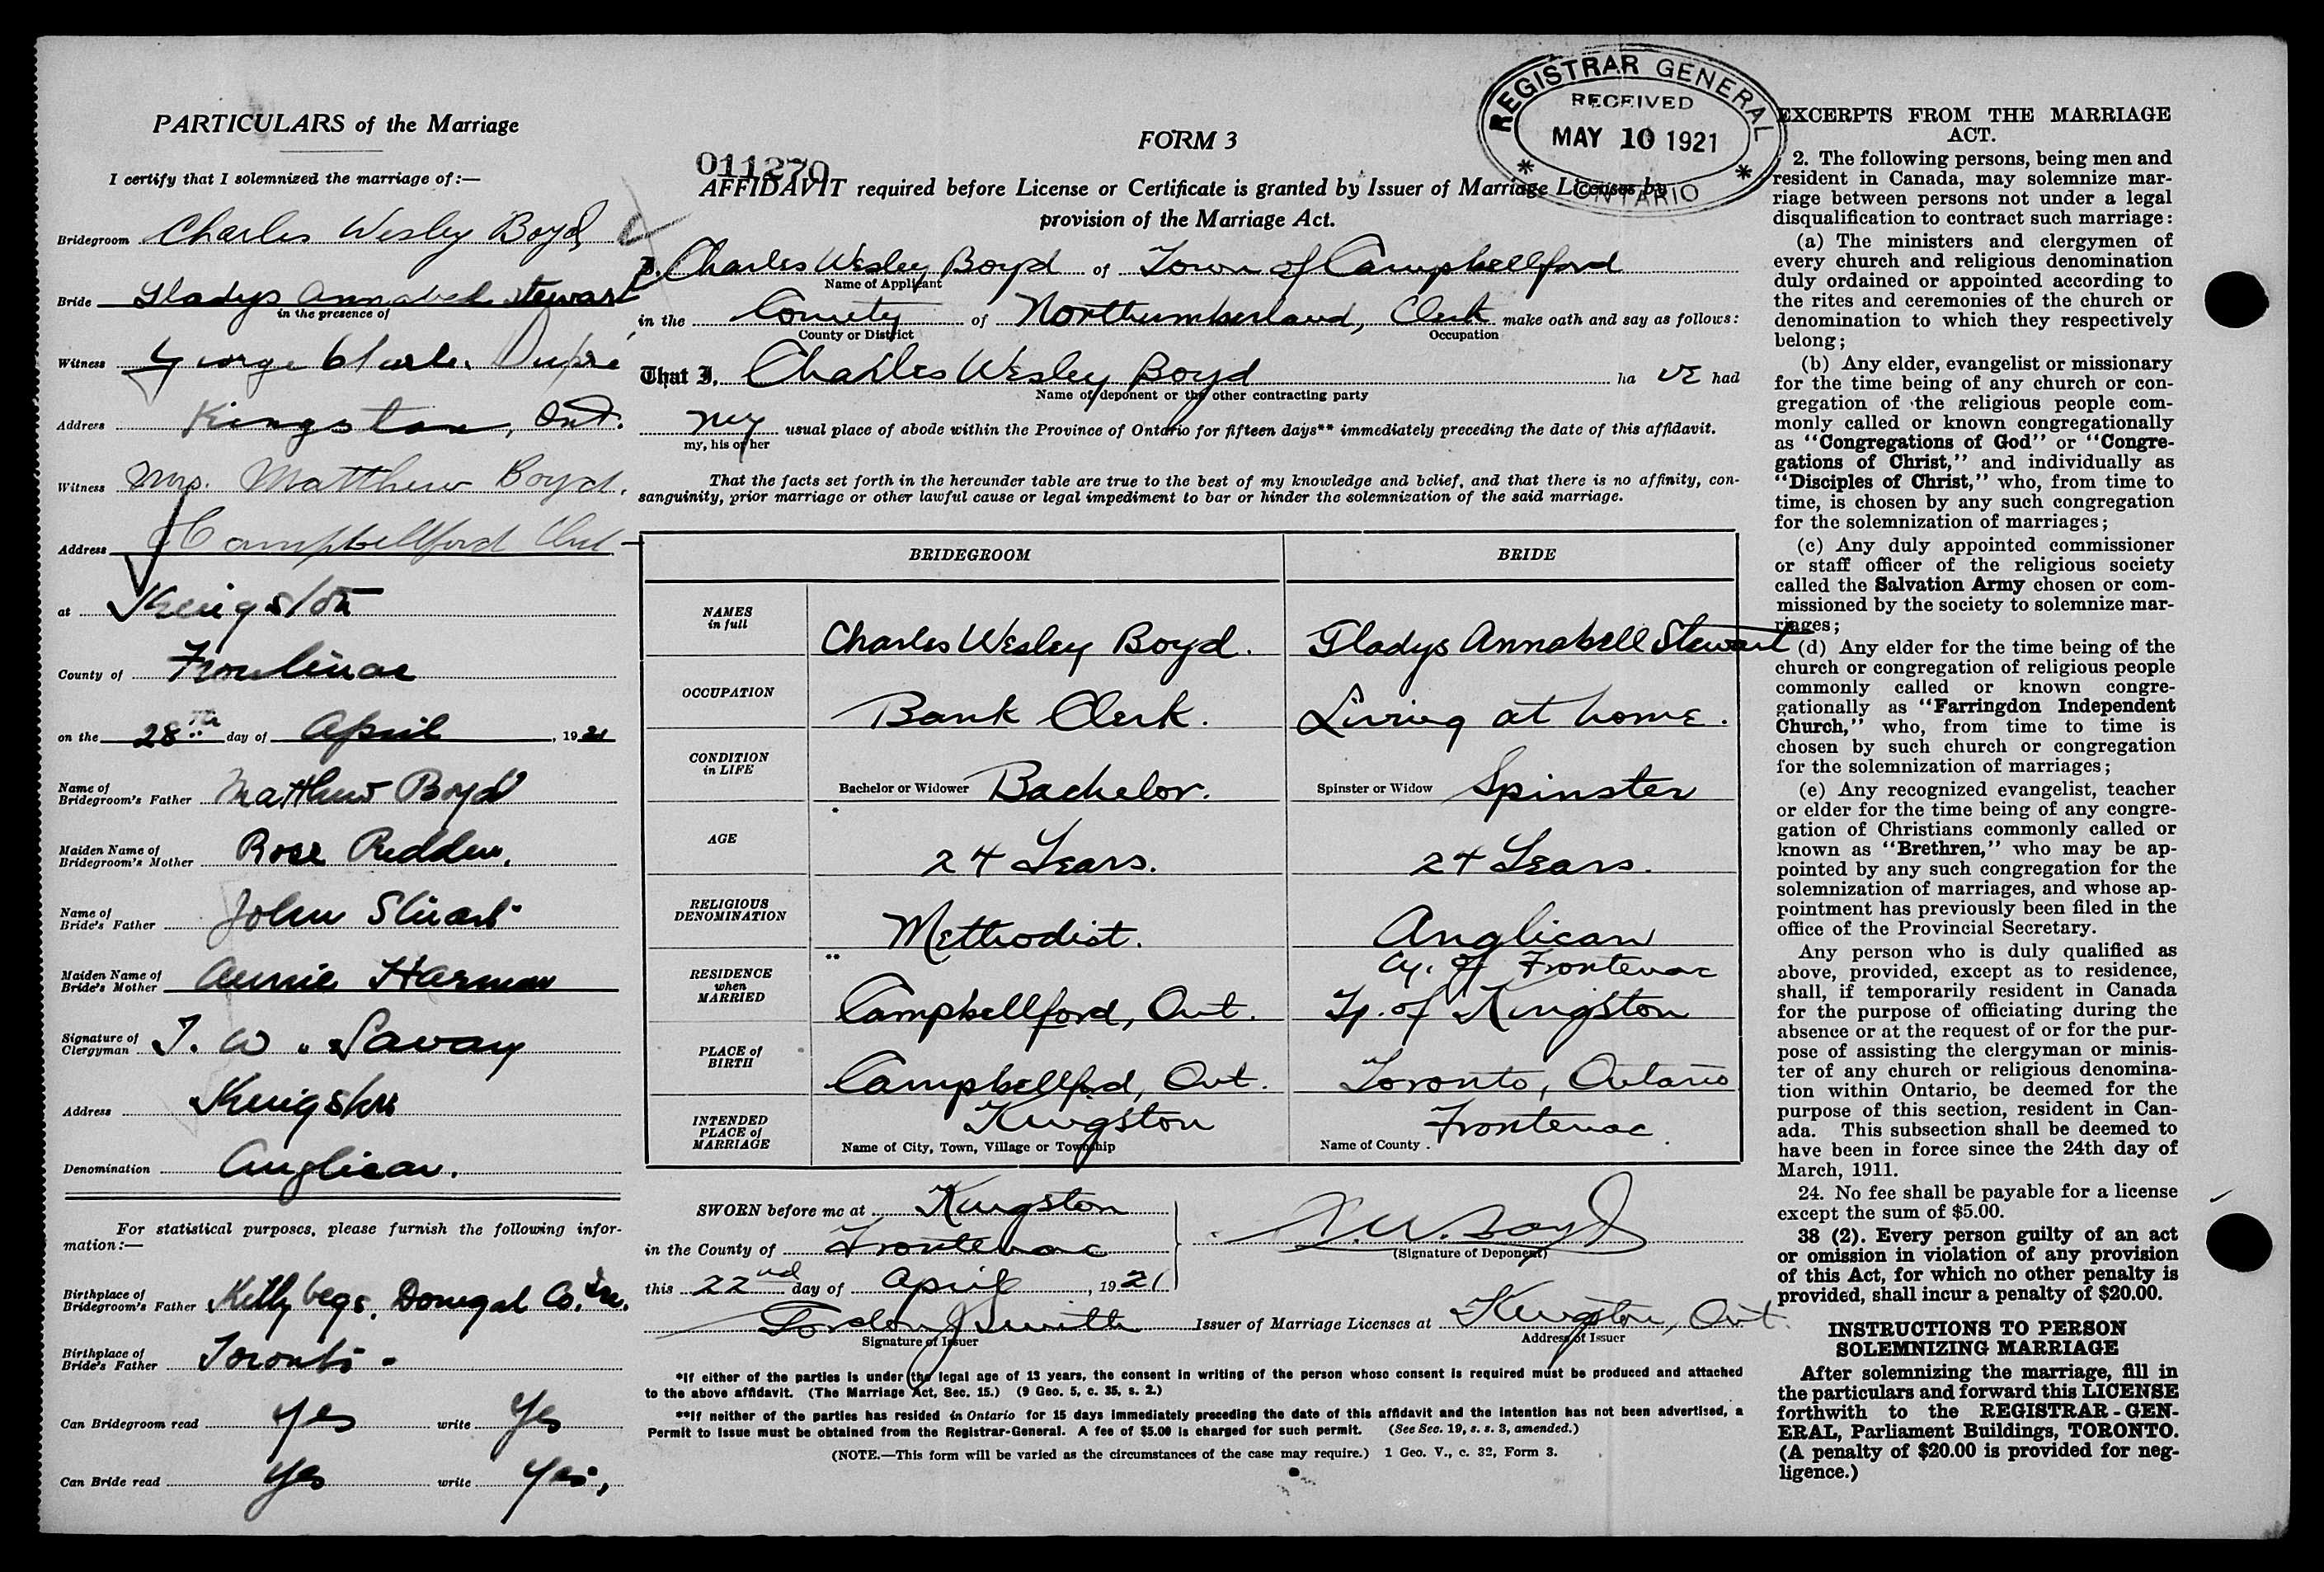 PARTICULARS of the Marriage
I certify that I solemnized the marriage of:—
Bridegroom Charles Wesley Boyd
Bride Gladys Annabel Stewart
in the presence of
Witness George Dupré
Address Kingston, Ont.
Witness Mrs. Matthew Boyd.
Address Campbellford Ont
at Kingston
County of Frontenac
on the 28th day of April, 1921
Name of
Bridegroom's Father Matthew Boyd
Maiden Name of
Bridegroom's Mother Rose Redden.
Name of
Bride's Father John Stuart
Maiden Name of
Bride's Mother Annie Harman
Signature of
Clergyman T. W. Savary
Address Kingston
Denomination Anglican.
For statistical purposes, please furnish the following infor-
mation:—
Birthplace of
Bridegroom's Father Killybegs, Donegal Co. Ire.
Birthplace of
Bride's Father Toronto.
Can Bridegroom read yes write yes
Can Bride read yes write yes,
011270
FORM 3
REGISTRAR GENERAL
RECEIVED
MAY 10 1921
ONTARIO
AFFIDAVIT required before License or Certificate is granted by Issuer of Marriage Licenses by
provision of the Marriage Act.
I, Charles Wesley Boyd of Town of Campbellford
Name of Applicant
in the County of Northumberland, Clerk make oath and say as follows:
County or District Occupation
That I, Charles Wesley Boyd ha ve had
Name of deponent or the other contracting party
my usual place of abode within the Province of Ontario for fifteen days** immediately preceding the date of this affidavit.
my, his or her
That the facts set forth in the hereunder table are true to the best of my knowledge and belief, and that there is no affinity, con-
sanguinity, prior marriage or other lawful cause or legal impediment to bar or hinder the solemnization of the said marriage.
BRIDEGROOM BRIDE
NAMES
in full
Charles Wesley Boyd. Gladys Annabell Stewart
OCCUPATION
Bank Clerk. Living at home.
CONDITION
in LIFE
Bachelor or Widower Bachelor. Spinster or Widow Spinster
AGE
24 Years. 24 Years.
RELIGIOUS
DENOMINATION
Methodist. Anglican
RESIDENCE
when
MARRIED
Cy. of Frontenac
Campbellford, Ont. Tp. of Kingston
PLACE of
BIRTH
Campbellford, Ont. Toronto, Ontario
INTENDED
PLACE of
MARRIAGE
Kingston Frontenac.
Name of City, Town, Village or Township Name of County
SWORN before me at Kingston
in the County of Frontenac
this 22nd day of April, 1921
C. W. Boyd
(Signature of Deponent)
Gordon J Smith Issuer of Marriage Licenses at Kingston, Ont.
Signature of Issuer Address of Issuer
*If either of the parties is under the legal age of 18 years, the consent in writing of the person whose consent is required must be produced and attached
to the above affidavit. (The Marriage Act, Sec. 15.) (9 Geo. 5, c. 35, s. 2.)
**If neither of the parties has resided in Ontario for 15 days immediately preceding the date of this affidavit and the intention has not been advertised, a
Permit to issue must be obtained from the Registrar-General. A fee of $5.00 is charged for such permit. (See Sec. 19, s. s. 3, amended.)
(NOTE.—This form will be varied as the circumstances of the case may require.) 1 Geo. V., c. 32, Form 3.
EXCERPTS FROM THE MARRIAGE
ACT.
2. The following persons, being men and
resident in Canada, may solemnize mar-
riage between persons not under a legal
disqualification to contract such marriage:
(a) The ministers and clergymen of
every church and religious denomination
duly ordained or appointed according to
the rites and ceremonies of the church or
denomination to which they respectively
belong;
(b) Any elder, evangelist or missionary
for the time being of any church or con-
gregation of the religious people com-
monly called or known congregationally
as "Congregations of God" or "Congre-
gations of Christ," and individually as
"Disciples of Christ," who, from time to
time, is chosen by any such congregation
for the solemnization of marriages;
(c) Any duly appointed commissioner
or staff officer of the religious society
called the Salvation Army chosen or com-
missioned by the society to solemnize mar-
riages;
(d) Any elder for the time being of the
church or congregation of religious people
commonly called or known congre-
gationally as "Farringdon Independent
Church," who, from time to time is
chosen by such church or congregation
for the solemnization of marriages;
(e) Any recognized evangelist, teacher
or elder for the time being of any congre-
gation of Christians commonly called or
known as "Brethren," who may be ap-
pointed by any such congregation for the
solemnization of marriages, and whose ap-
pointment has previously been filed in the
office of the Provincial Secretary.
Any person who is duly qualified as
above, provided, except as to residence,
shall, if temporarily resident in Canada
for the purpose of officiating during the
absence or at the request of or for the pur-
pose of assisting the clergyman or minis-
ter of any church or religious denomina-
tion within Ontario, be deemed for the
purpose of this section, resident in Can-
ada. This subsection shall be deemed to
have been in force since the 24th day of
March, 1911.
24. No fee shall be payable for a license
except the sum of $5.00.
38 (2). Every person guilty of an act
or omission in violation of any provision
of this Act, for which no other penalty is
provided, shall incur a penalty of $20.00.
INSTRUCTIONS TO PERSON
SOLEMNIZING MARRIAGE
After solemnizing the marriage, fill in
the particulars and forward this LICENSE
forthwith to the REGISTRAR-GEN-
ERAL, Parliament Buildings, TORONTO.
(A penalty of $20.00 is provided for neg-
ligence.)